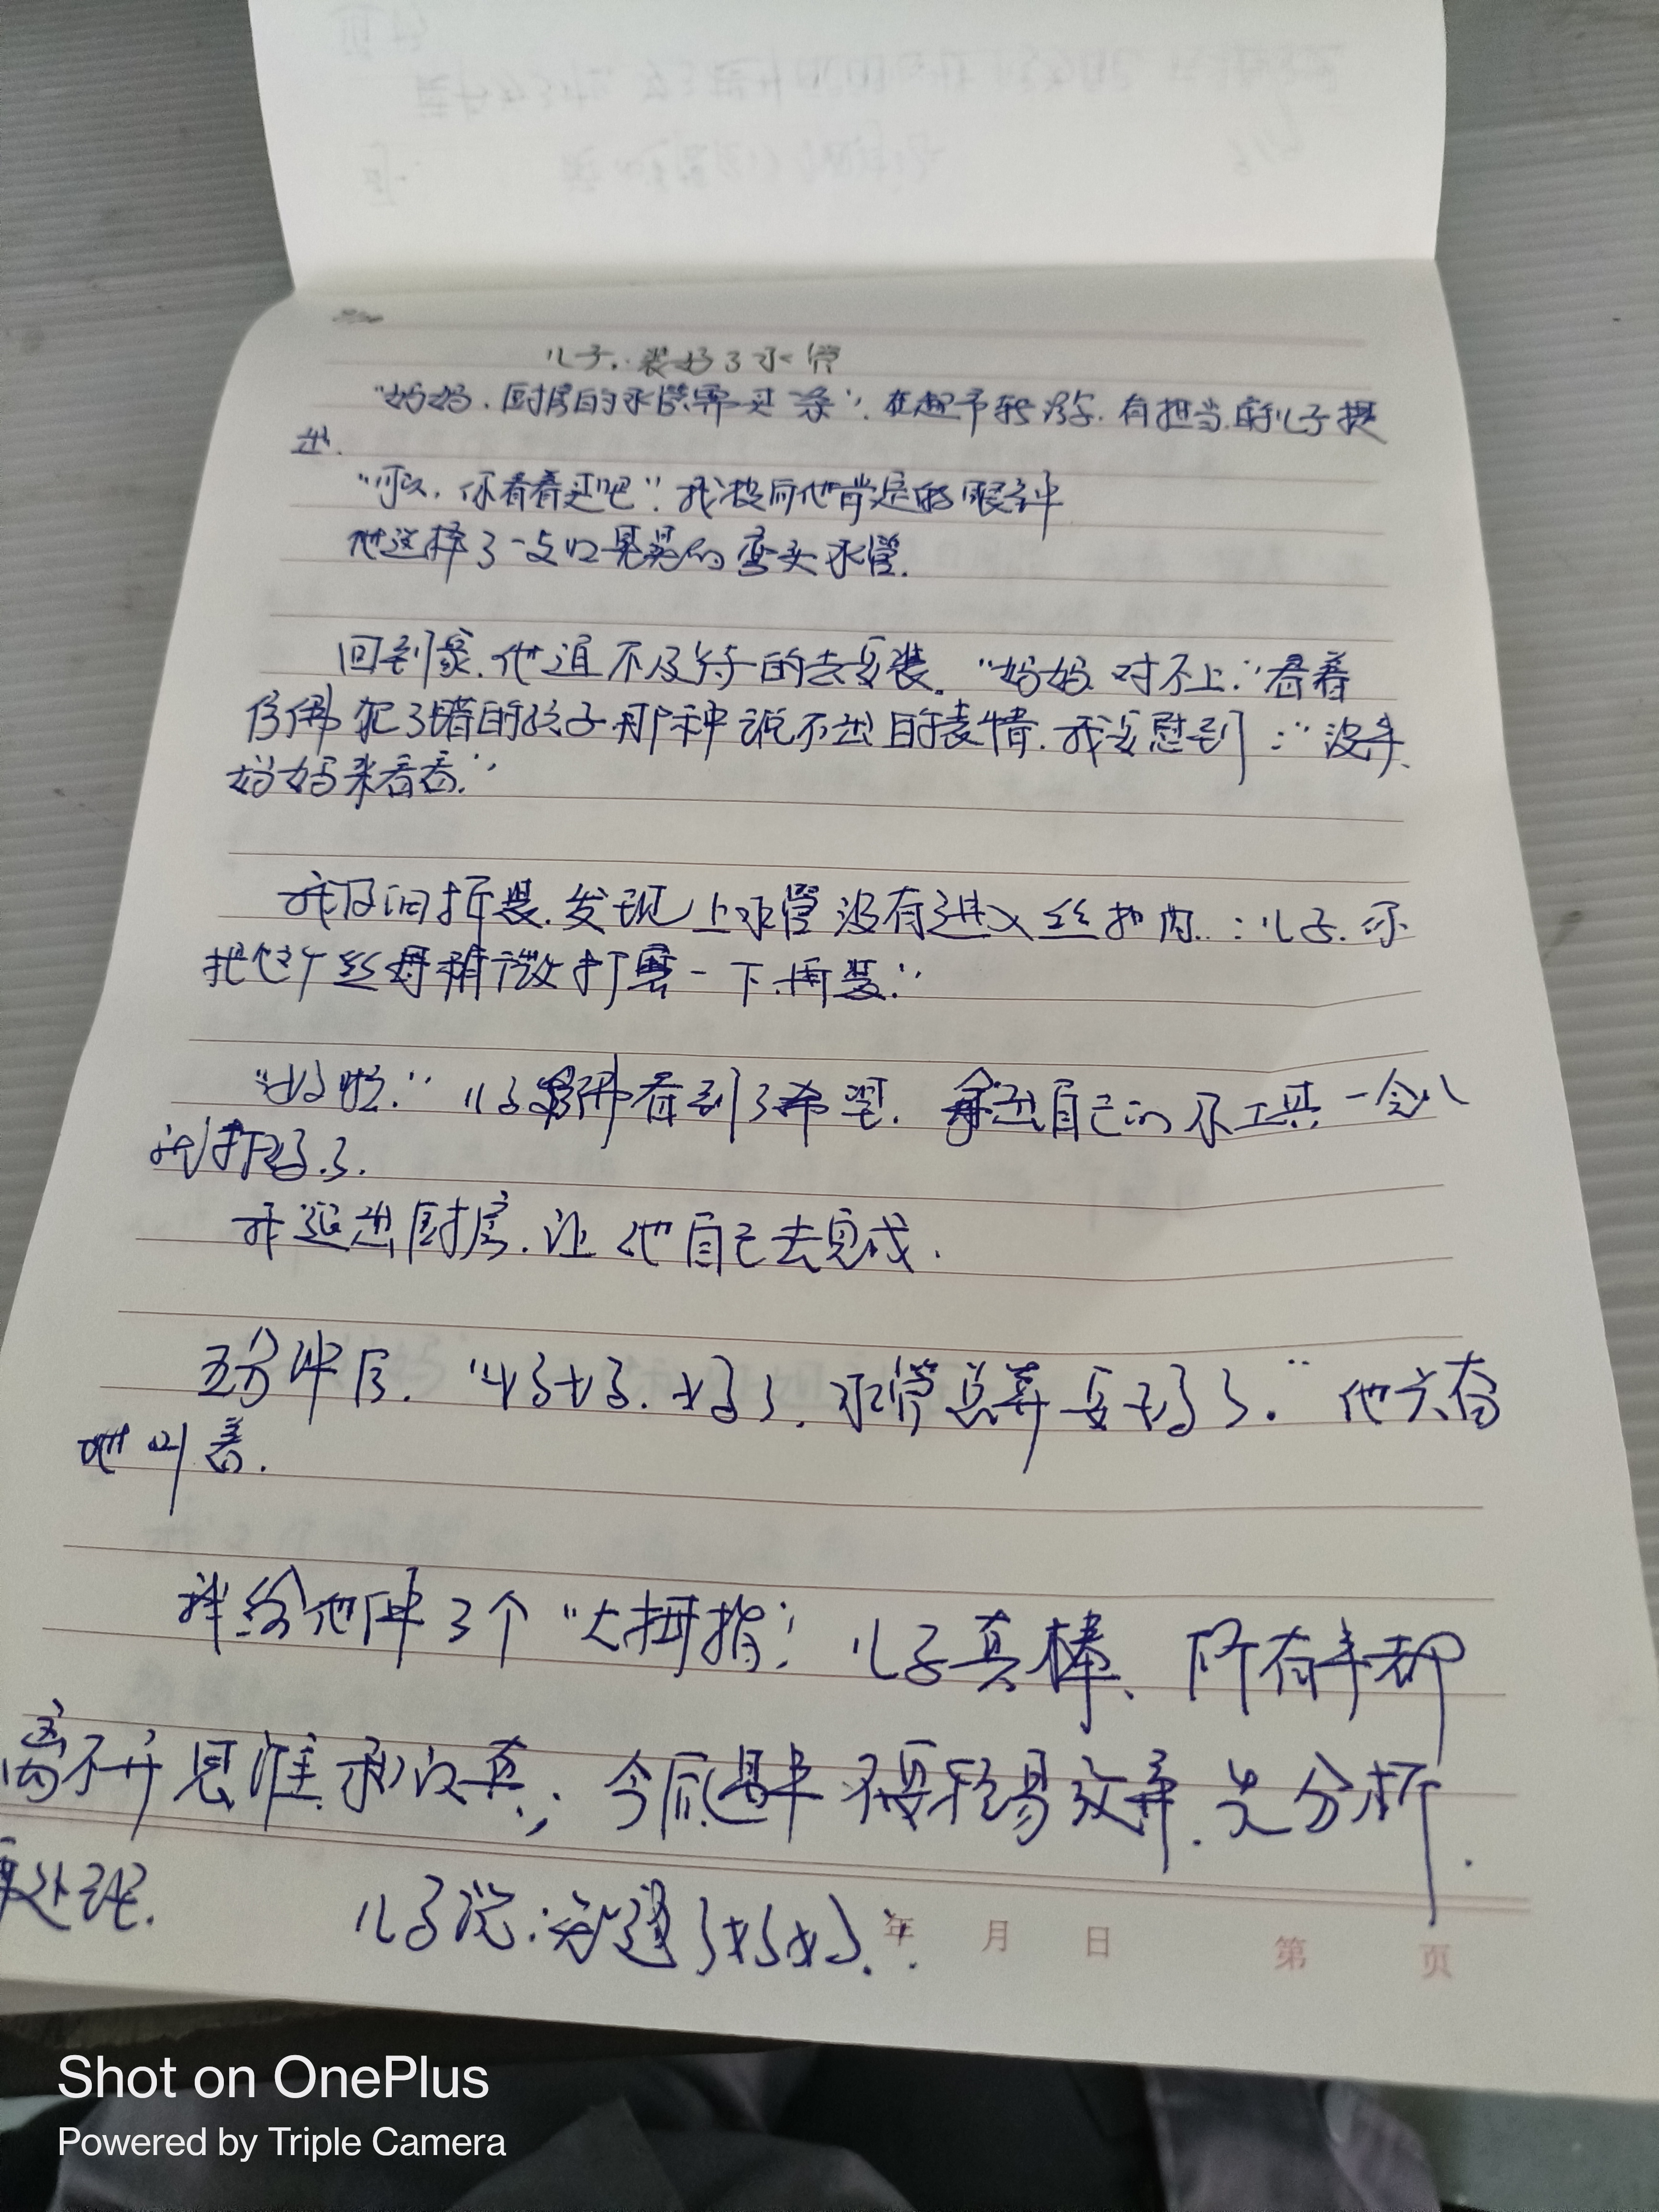 儿子,装好了水管
“妈妈,厨房的水管需买一条”.在超市转悠,有担当的儿子提
出.
“可以,你看着买吧”.我投向他肯定的眼神
他选择了一支口晃晃的弯头水管.
回到家.他迫不及待的去安装。“妈妈 对不上.”看着
仿佛犯了错的孩子那种说不出的表情.我安慰到:“没事.
妈妈来看看.”
我 拆装.发现上水管没有进入丝扣内.:儿子.你
把这个丝母稍微打磨一下.再装.”
“好啦.”儿子仿佛看到了希望.拿出自己的 工具 一会儿
就打好了.
我退出厨房.让他自己去完成.
五分钟后.“好了好了.好了.水管总算安好了.”他大奋
地叫着.
我给他伸了个“大拇指”儿子真棒、所有事都
离不开思维和认真.;今后遇事不要轻易放弃.先分析.
再处理.
儿子说:知道了妈妈.”
年 月 日 第 页
Shot on OnePlus
Powered by Triple Camera